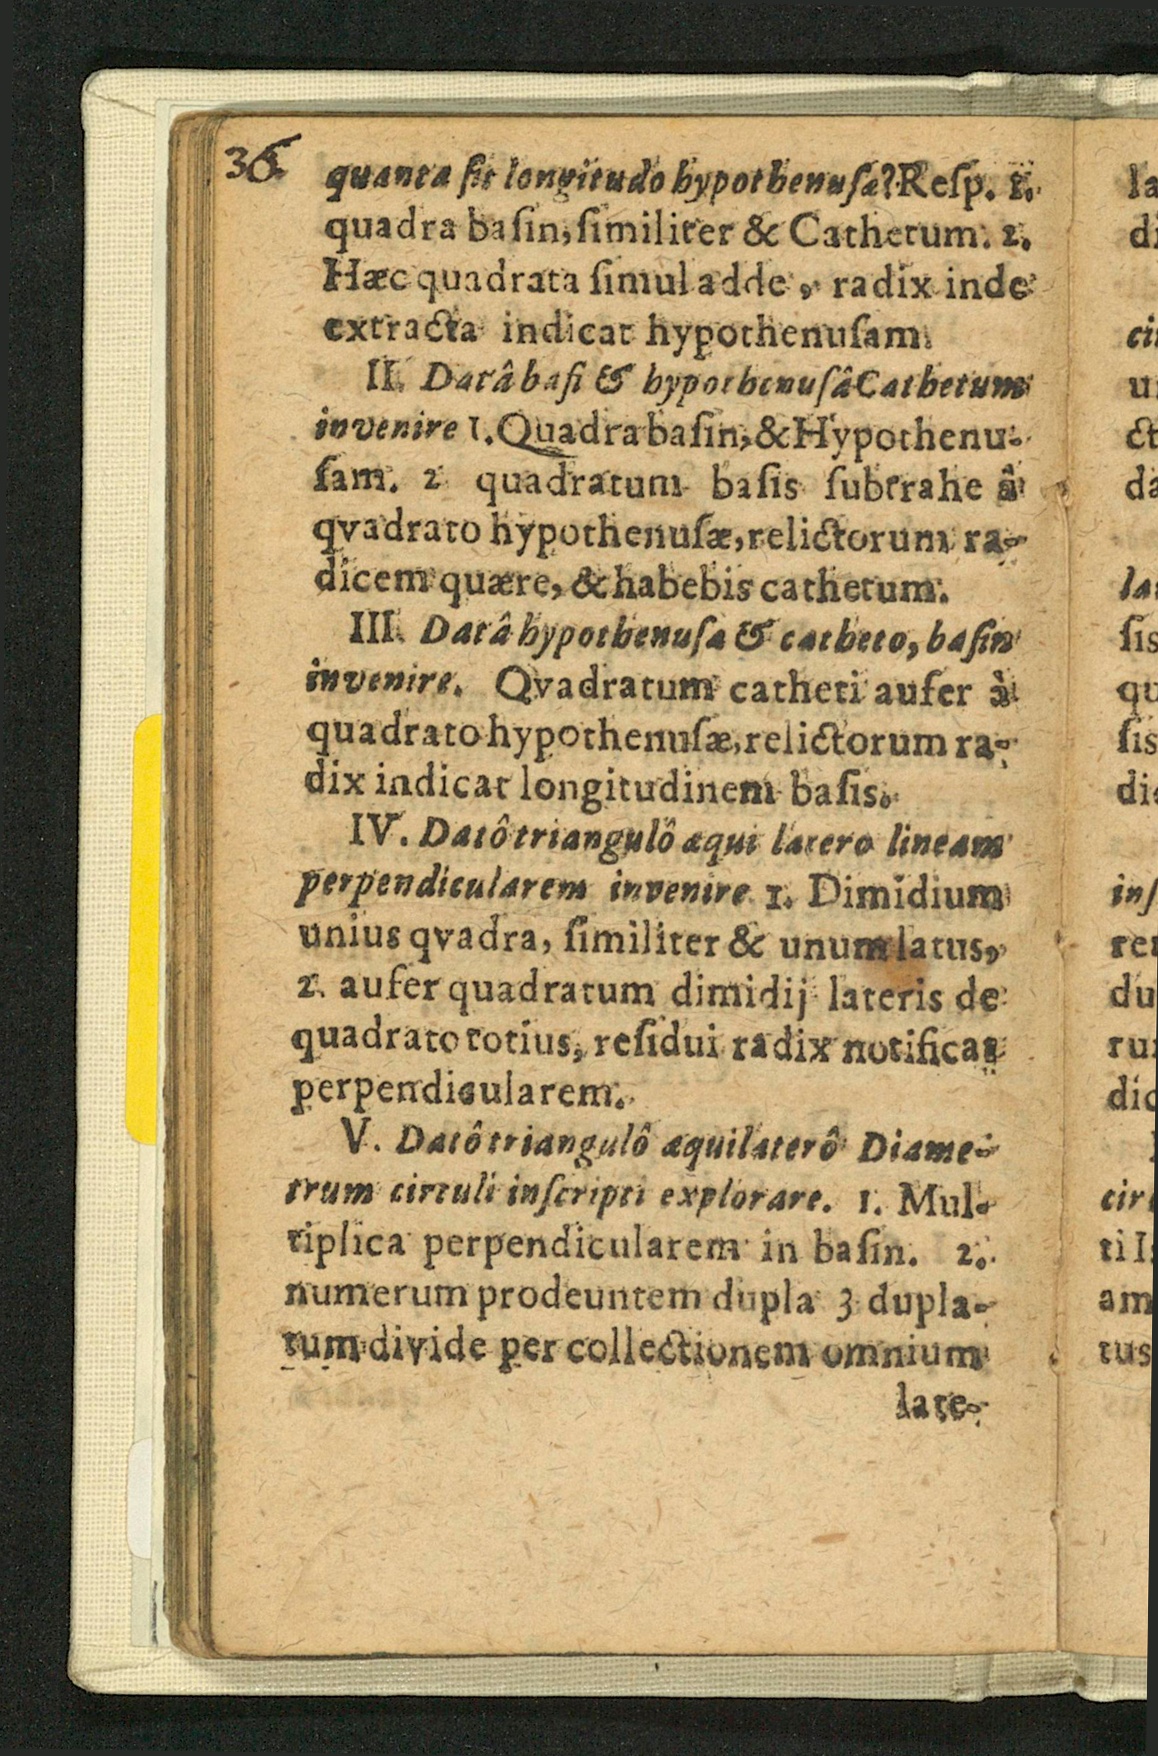 36.
quanta ſit longitudo hypothenuſæ? Reſp. 1.
quadra baſin, ſimiliter & Cathetum. 2.
Hæc quadrata ſimul adde, radix inde
extracta indicat hypothenuſam.
II. Datâ baſi & hypothenuſâ Cathetum
invenire 1. Quadra baſin, & Hypothenu-
ſam. 2 quadratum baſis ſubtrahe â
qvadrato hypothenuſæ, relictorum ra-
dicem quære, & habebis cathetum.
III. Datâ hypothenuſa & catheto, baſin
invenire. Qvadratum catheti aufer à
quadrato hypothenuſæ, relictorum ra-
dix indicat longitudinem baſis.
IV. Datô triangulô æqui latero lineam
perpendicularem invenire 1. Dimidium
unius qvadra, ſimiliter & unum latus,
2. aufer quadratum dimidij lateris de
quadrato totius, reſidui radix notificat
perpendicularem.
V. Datô triangulô æquilaterô Diame-
trum circuli inſcripti explorare. 1. Mul-
tiplica perpendicularem in baſin. 2.
numerum prodeuntem dupla 3 dupla-
tum divide per collectionem omnium
late-
la
di
ct
da
ſis
qu
ſis
du
dic
ti
am
tus